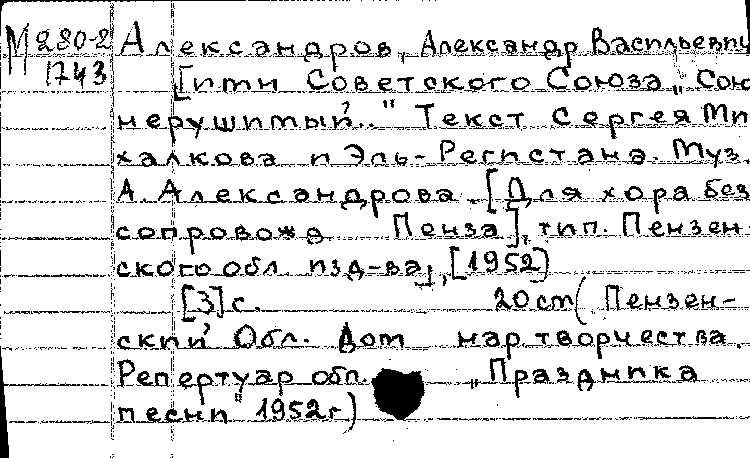 М 280-2 Александров, Александр Васильевич
1743 [Гимн Советского Союза „Сою
нерушимый..." Текст Сергея Ми
халкова и Эль-Регистана. Муз.
А. Александрова. [Для хора без
сопровожд Пенза], тип. Пензен-
ского обл. изд-ва, [1952]
[3] с. 20 cm (Пензен-
ский Обл. Дом нар творчества.
Репертуар обл. „Праздника
песни" 1952г)